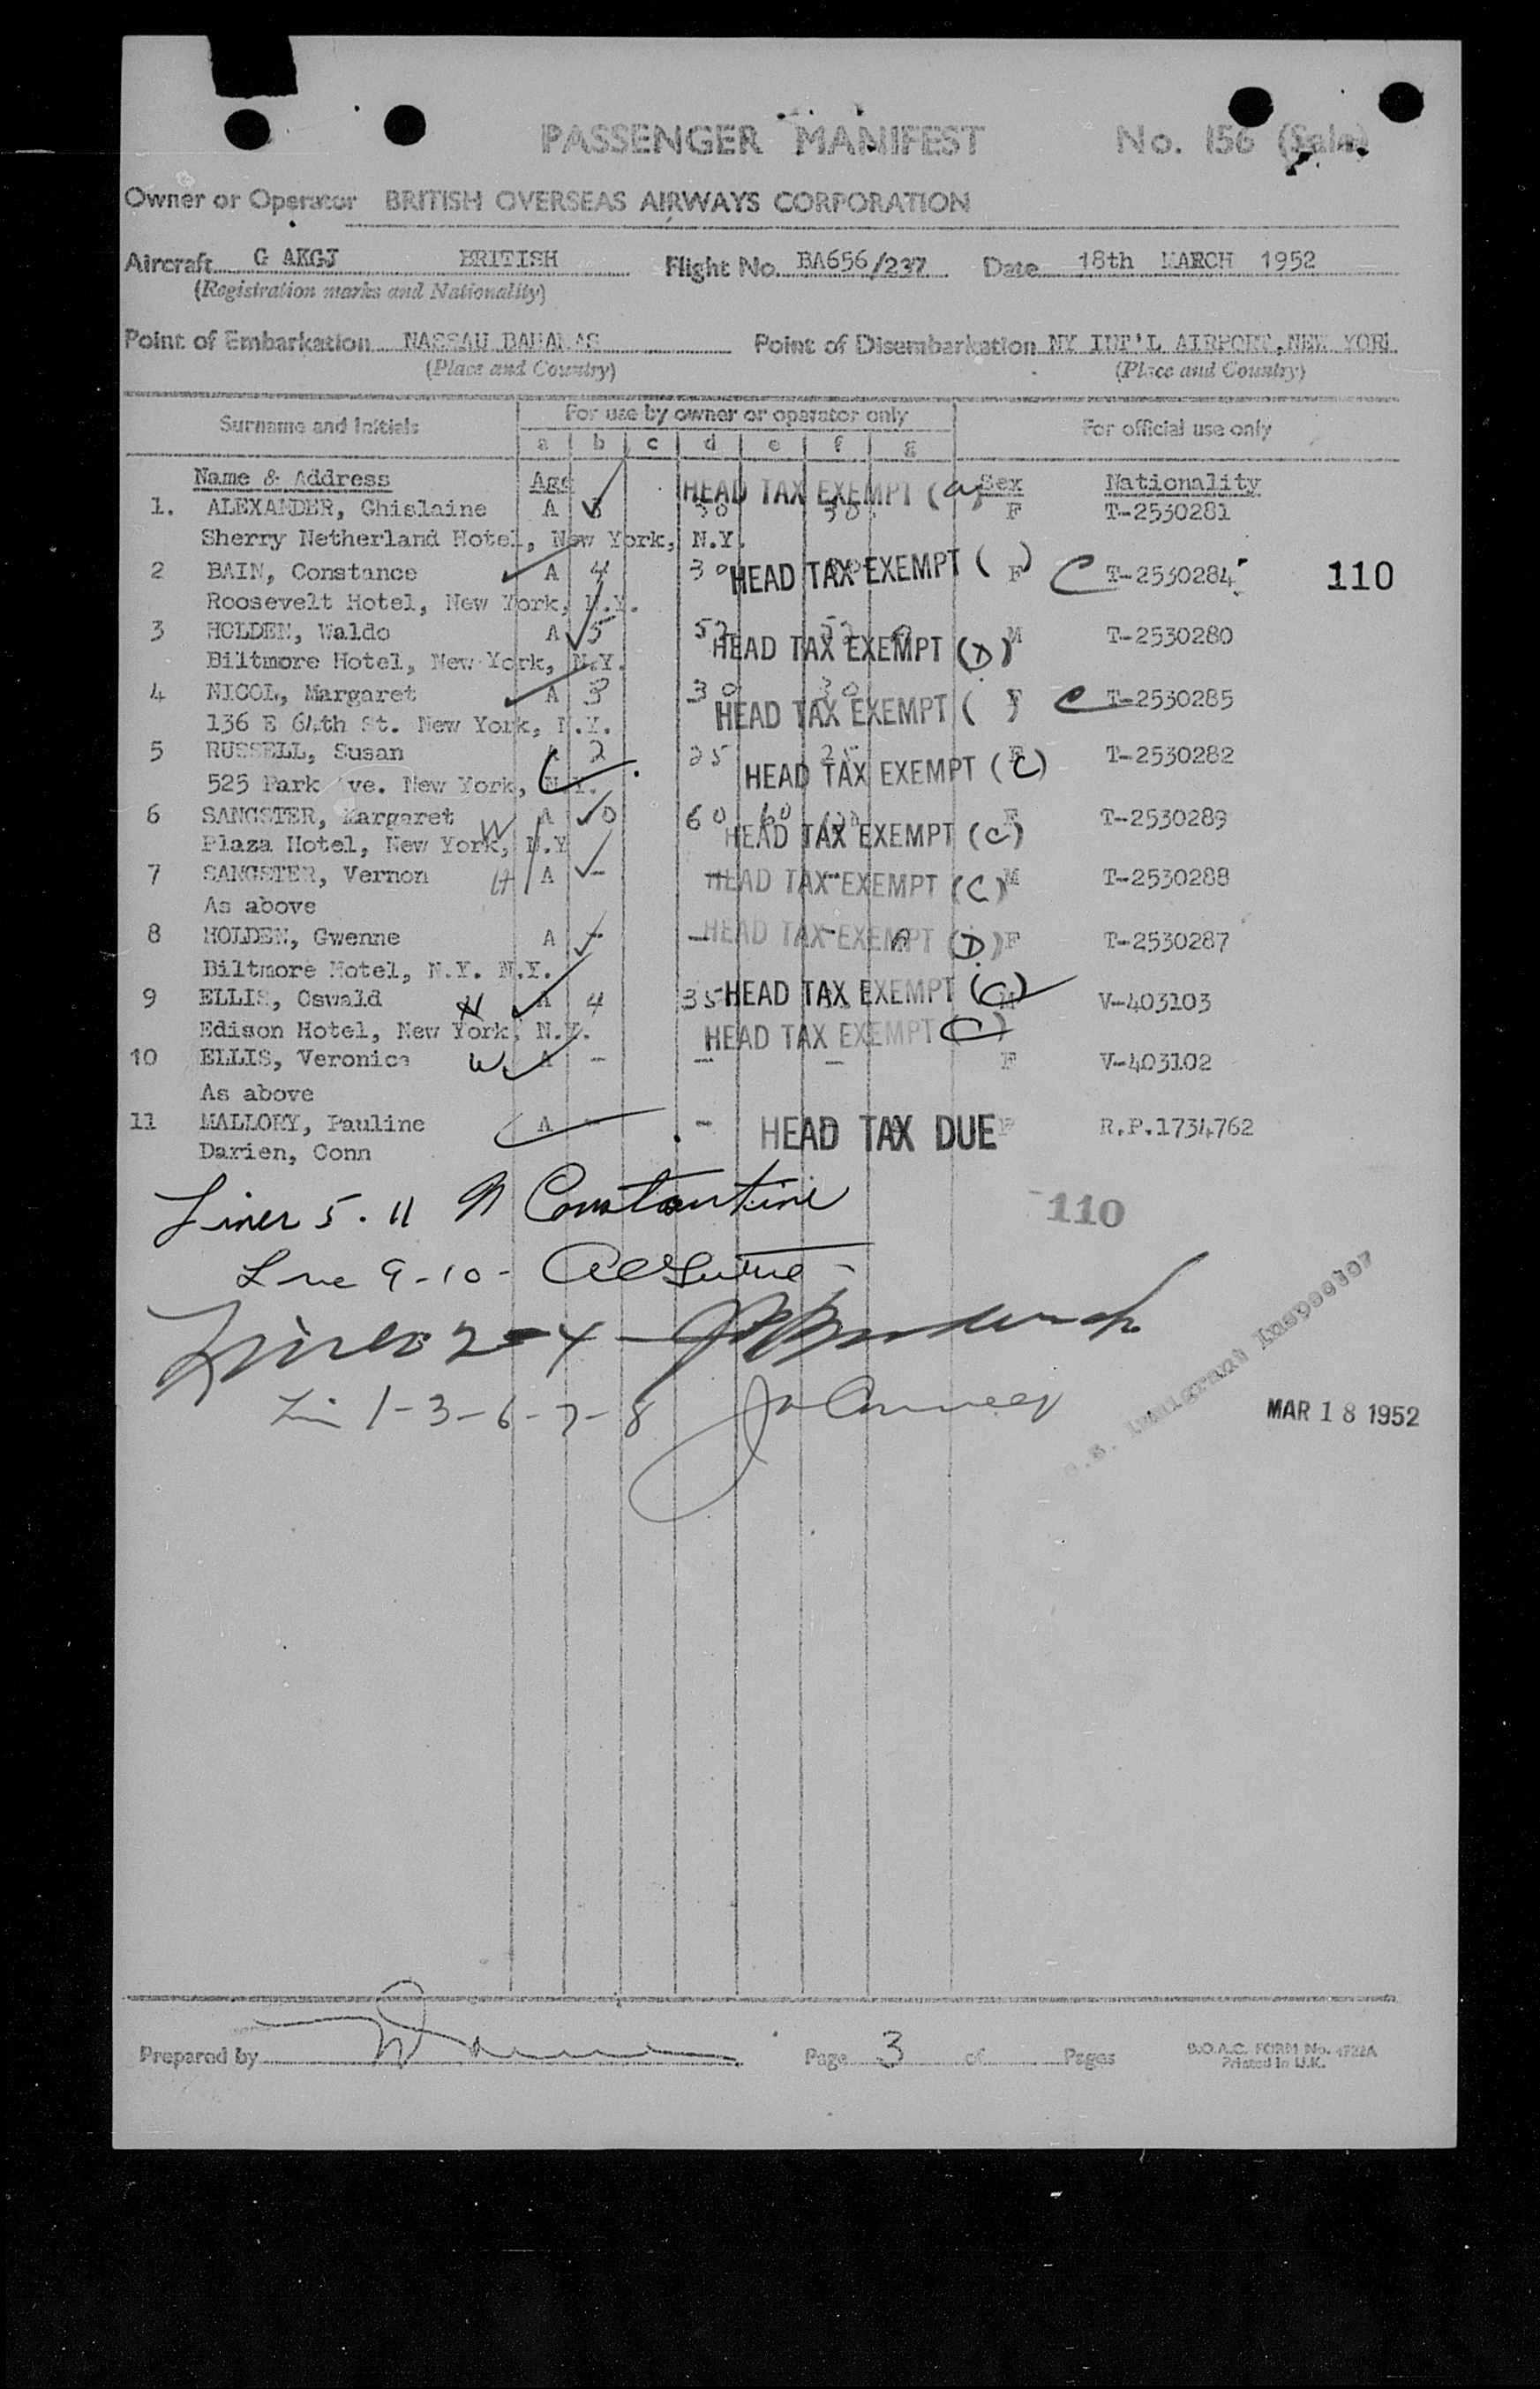 PASSENGER MANIFEST No. 156
Owner or Operator BRITISH OVERSEAS AIRWAYS CORPORATION
Aircraft G AKGJ BRITISH Flight No. BA656/237 Date 18th MARCH 1952
(Registration marks and Nationality)
Point of Embarkation NASSAU BAHAMAS Point of Disembarkation NY INT'L AIRPORT, NEW YORK
(Place and Country) (Place and Country)
Surname and Initials For use by owner or operator only For official use only
a b c d e f g
Name & Address Age HEAD TAX EXEMPT Sex Nationality
1. ALEXANDER, Ghislaine A 30 30 F T-2530281
Sherry Netherland Hotel, New York, N.Y.
2 BAIN, Constance A 4 30 HEAD TAX EXEMPT ( ) F C T-2530284 110
Roosevelt Hotel, New York, N.Y.
3 HOLDEN, Waldo A 5 52 52 M T-2530280
Biltmore Hotel, New York, N.Y. HEAD TAX EXEMPT (D)
4 NICOL, Margaret A 3 30 30 F C T-2530285
136 E 64th St. New York, N.Y. HEAD TAX EXEMPT ( )
5 RUSSELL, Susan A 2 25 25 F T-2530282
525 Park Ave. New York, N.Y. HEAD TAX EXEMPT (C)
6 SANGSTER, Margaret A 0 60 60 F T-2530289
Plaza Hotel, New York, N.Y W HEAD TAX EXEMPT (C)
7 SANGSTER, Vernon H A - HEAD TAX EXEMPT (C) M T-2530288
As above
8 HOLDEN, Gwenne A - - HEAD TAX EXEMPT (D) F T-2530287
Biltmore Hotel, N.Y. N.Y.
9 ELLIS, Oswald H A 4 35 HEAD TAX EXEMPT (C) M V-403103
Edison Hotel, New York, N.Y. HEAD TAX EXEMPT (C)
10 ELLIS, Veronica W A - - - F V-403102
As above
11 MALLORY, Pauline A - - HEAD TAX DUE F R.P.1734762
Darien, Conn
Lines 5-11 N Constantine 110
Line 9-10-
Lines 2-4
1-3-6-7-8
U.S. Immigrant Inspector
MAR 18 1952
Prepared by Page 3 of Pages B.O.A.C. FORM No. 1722A
Printed in U.K.